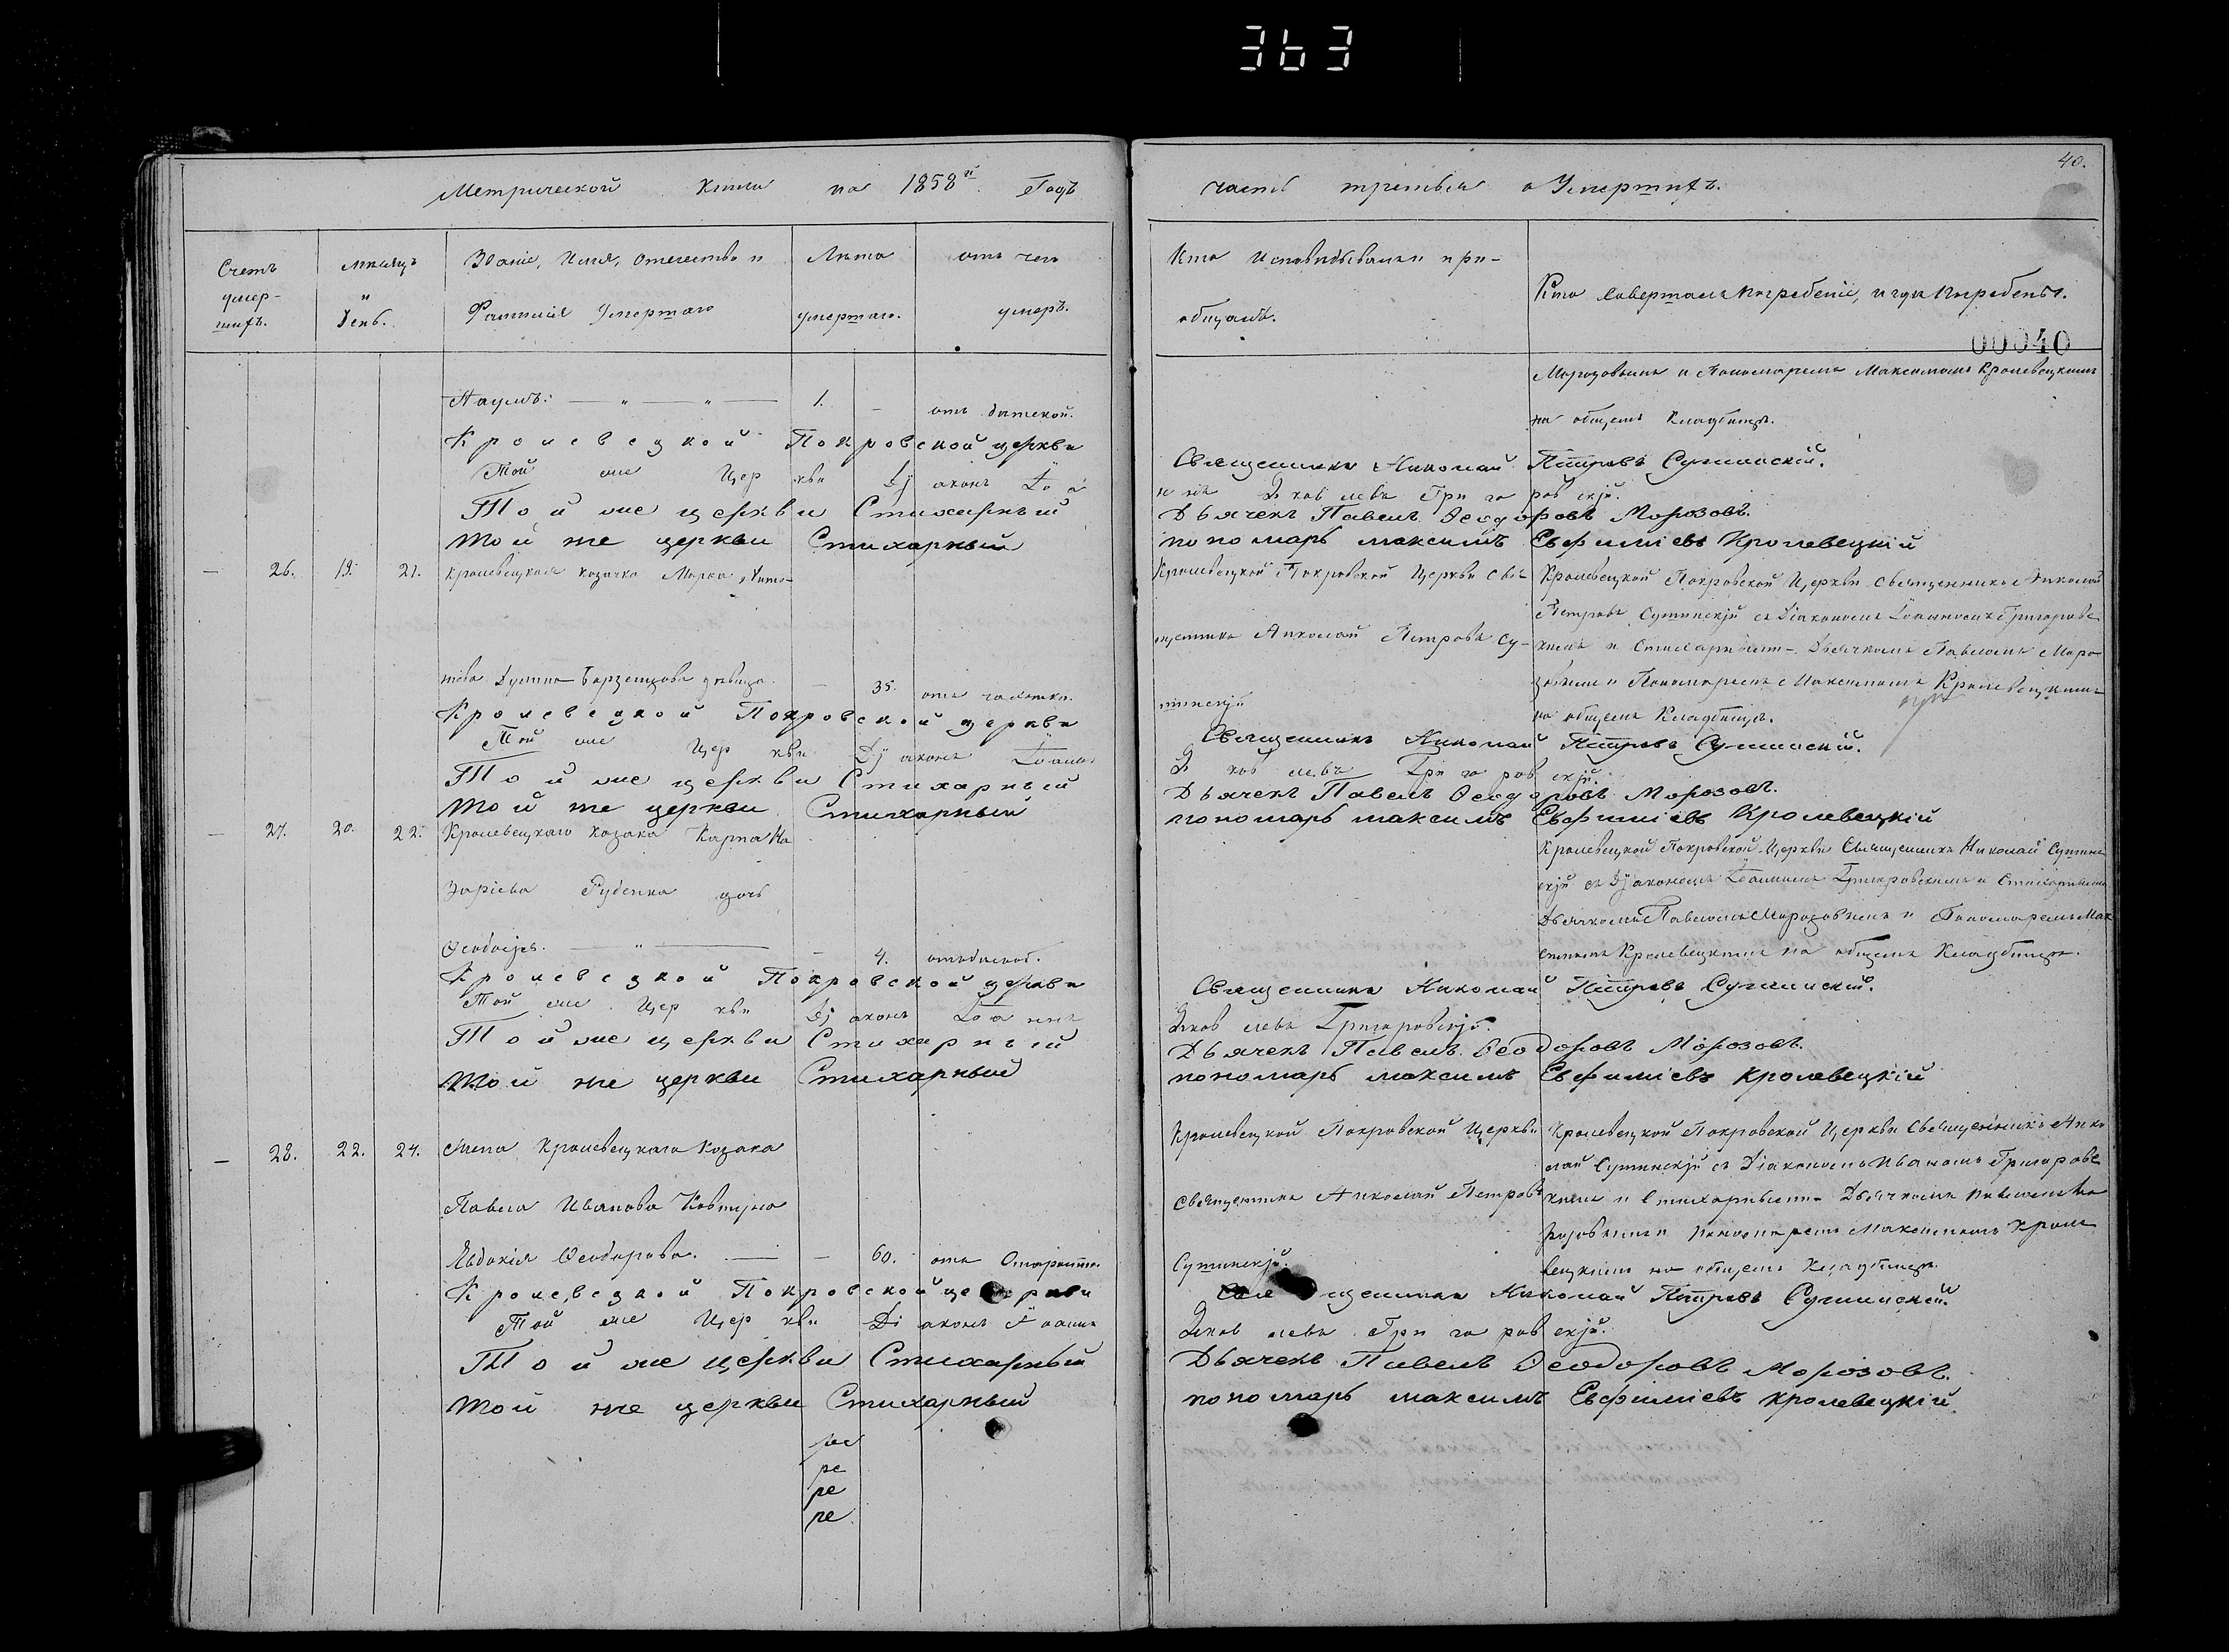 363
Метрической книги на 1858й Годъ
часть третья о Умершихъ.
40.
Счетъ умер- шихъ.
Мѣсяцъ и День.
Званіе, Имя, Отечество и
Фамилія Умершаго
Лѣта
умершаго.
отъ чего
умеръ.
Кто Исповѣдывалъ и прі-
общалъ.
Кто Совершалъ Погребеніе, и гдѣ Погребены.
00040
Морозовымъ и Пономаремъ Максимомъ Кролевецкимъ
на общемъ Кладбищѣ.
Наумъ. — " — " — 1. -
Кролевецкой Покровской церкви Священникъ Николай Петровъ Сушинскій.
Той же Церкви Діаконъ Іоаннъ Яковлевъ Григоровскій.
Той же церкви Стихарный Дьячекъ Павелъ Ѳеодоровъ Морозовъ.
Той же церкви Стихарный пономарь Максимъ Евфиміевъ Кролевецкій
— 26. 19. 21. Кролевецкая козачка Марѳа
Борзенцова дѣвица. — 35.
Кролевецкой Покровской Церкви Свя-
щенникъ Николай Петровъ Су-
шинскій
Кролевецкой Покровской Церкви Священникъ Николай
Петровъ Сушинскій съ Діакономъ Іоанномъ Григоровс-
кимъ и Стихарными Дьячкомъ Павломъ Моро-
зовымъ и Пономаремъ Максимомъ Кролевецкимъ
на общемъ Кладбищѣ.
Кролевецкой Покровской церкви Священникъ Николай Петровъ Сушинскій.
Той же Церкви Діаконъ Іоаннъ Яковлевъ Григоровскій.
Той же церкви Стихарный Дьячекъ Павелъ Ѳеодоровъ Морозовъ.
Той же церкви Стихарный пономарь Максимъ Евфиміевъ Кролевецкій
— 27. 20. 22. Кролевецкаго козака Карпа На
заріева Руденка дочь
Ѳеодосія. — " — 4.
Кролевецкой Покровской Церкви Священникъ Николай Сушин-
скій съ Діакономъ Іоанномъ Григоровскимъ и Стихарными
Дьячкомъ Павломъ Морозовымъ и Пономаремъ Мак
симомъ Кролевецкимъ на общемъ Кладбищѣ.
Кролевецкой Покровской церкви Священникъ Николай Петровъ Сушинскій.
Той же Церкви Діаконъ Іоаннъ Яковлевъ Григоровскій.
Той же церкви Стихарный Дьячекъ Павелъ Ѳеодоровъ Морозовъ.
Той же церкви Стихарный пономарь Максимъ Евфиміевъ Кролевецкій
— 28. 22. 24. Жена Кролевецкаго Козака
Павла Иванова Ковтуна
Евдокія Ѳеодорова. — — 60. отъ Старости.
Кролевецкой Покровской Церкви
Священникъ Николай Петровъ
Сушинскій.
Кролевецкой Покровской Церкви Священникъ Нико
лай Сушинскій съ Діакономъ Иваномъ Григоровс
кимъ и Стихарными Дьячкомъ Павломъ Мо
розовымъ и Пономаремъ Максимомъ Кроле
вецкимъ на общемъ Кладбищѣ.
Кролевецкой Покровской церкви Священникъ Николай Петровъ Сушинскій.
Той же Церкви Діаконъ Іоаннъ Яковлевъ Григоровскій.
Той же церкви Стихарный Дьячекъ Павелъ Ѳеодоровъ Морозовъ.
Той же церкви Стихарный пономарь Максимъ Евфиміевъ Кролевецкій.
ре
ре
ре